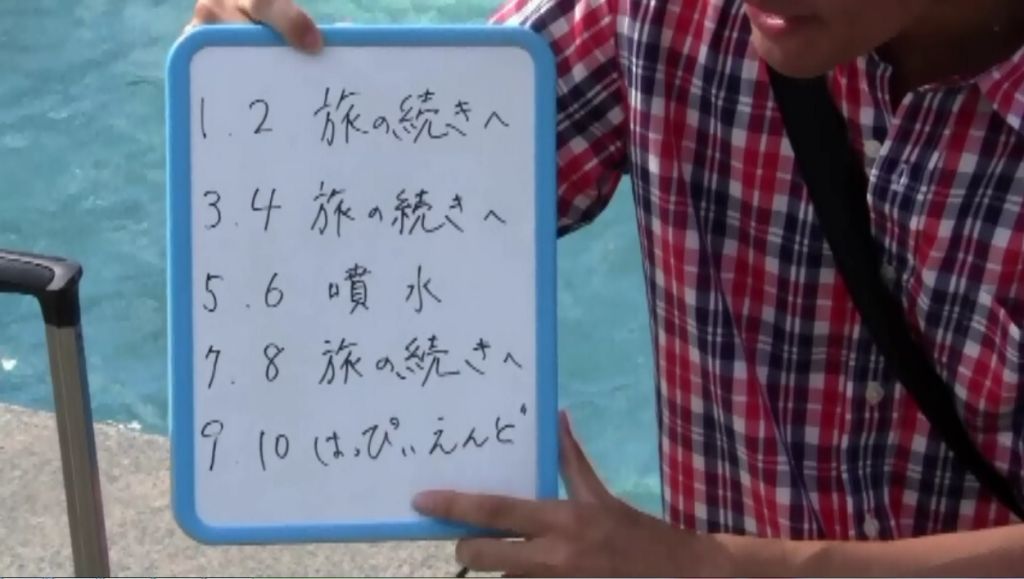 1.2 旅の続きへ
3.4 旅の続きへ
5.6 噴水
7.8 旅の続きへ
9.10 はっぴぃえんど